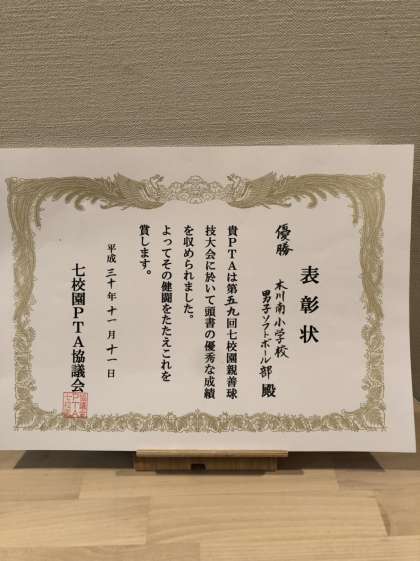 表彰状
優勝
木川南小学校
男子ソフトボール部 殿
貴PTAは第五九回七校園親善球
技大会に於いて頭書の優秀な成績
を収められました。
よってその健闘をたたえこれを
賞します。
平成三十年十一月十一日
七校園PTA協議会